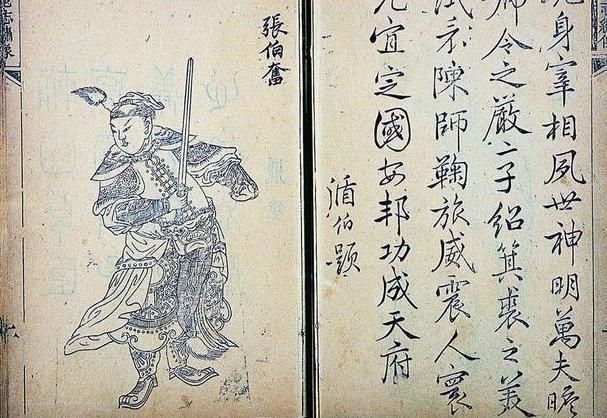 身宰相夙世神明萬夫
令之嚴二子紹箕裘之美
陳師鞠旅威震人寰
宜定國安邦功成天府
伯題
張伯奮